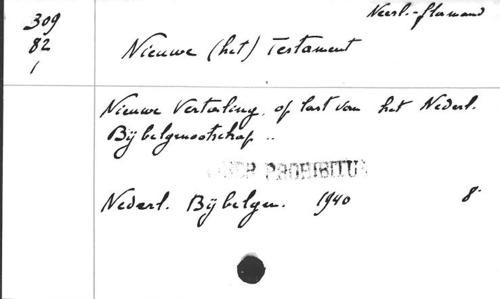 309
82
1
Neerl.-flamand
Nieuwe (het) Testament
Nieuwe Vertaling, op last van het Nederl.
Bijbelgenootschap ..
LIBER PROHIBITUS
Nederl. Bijbelgen. 1940 8°